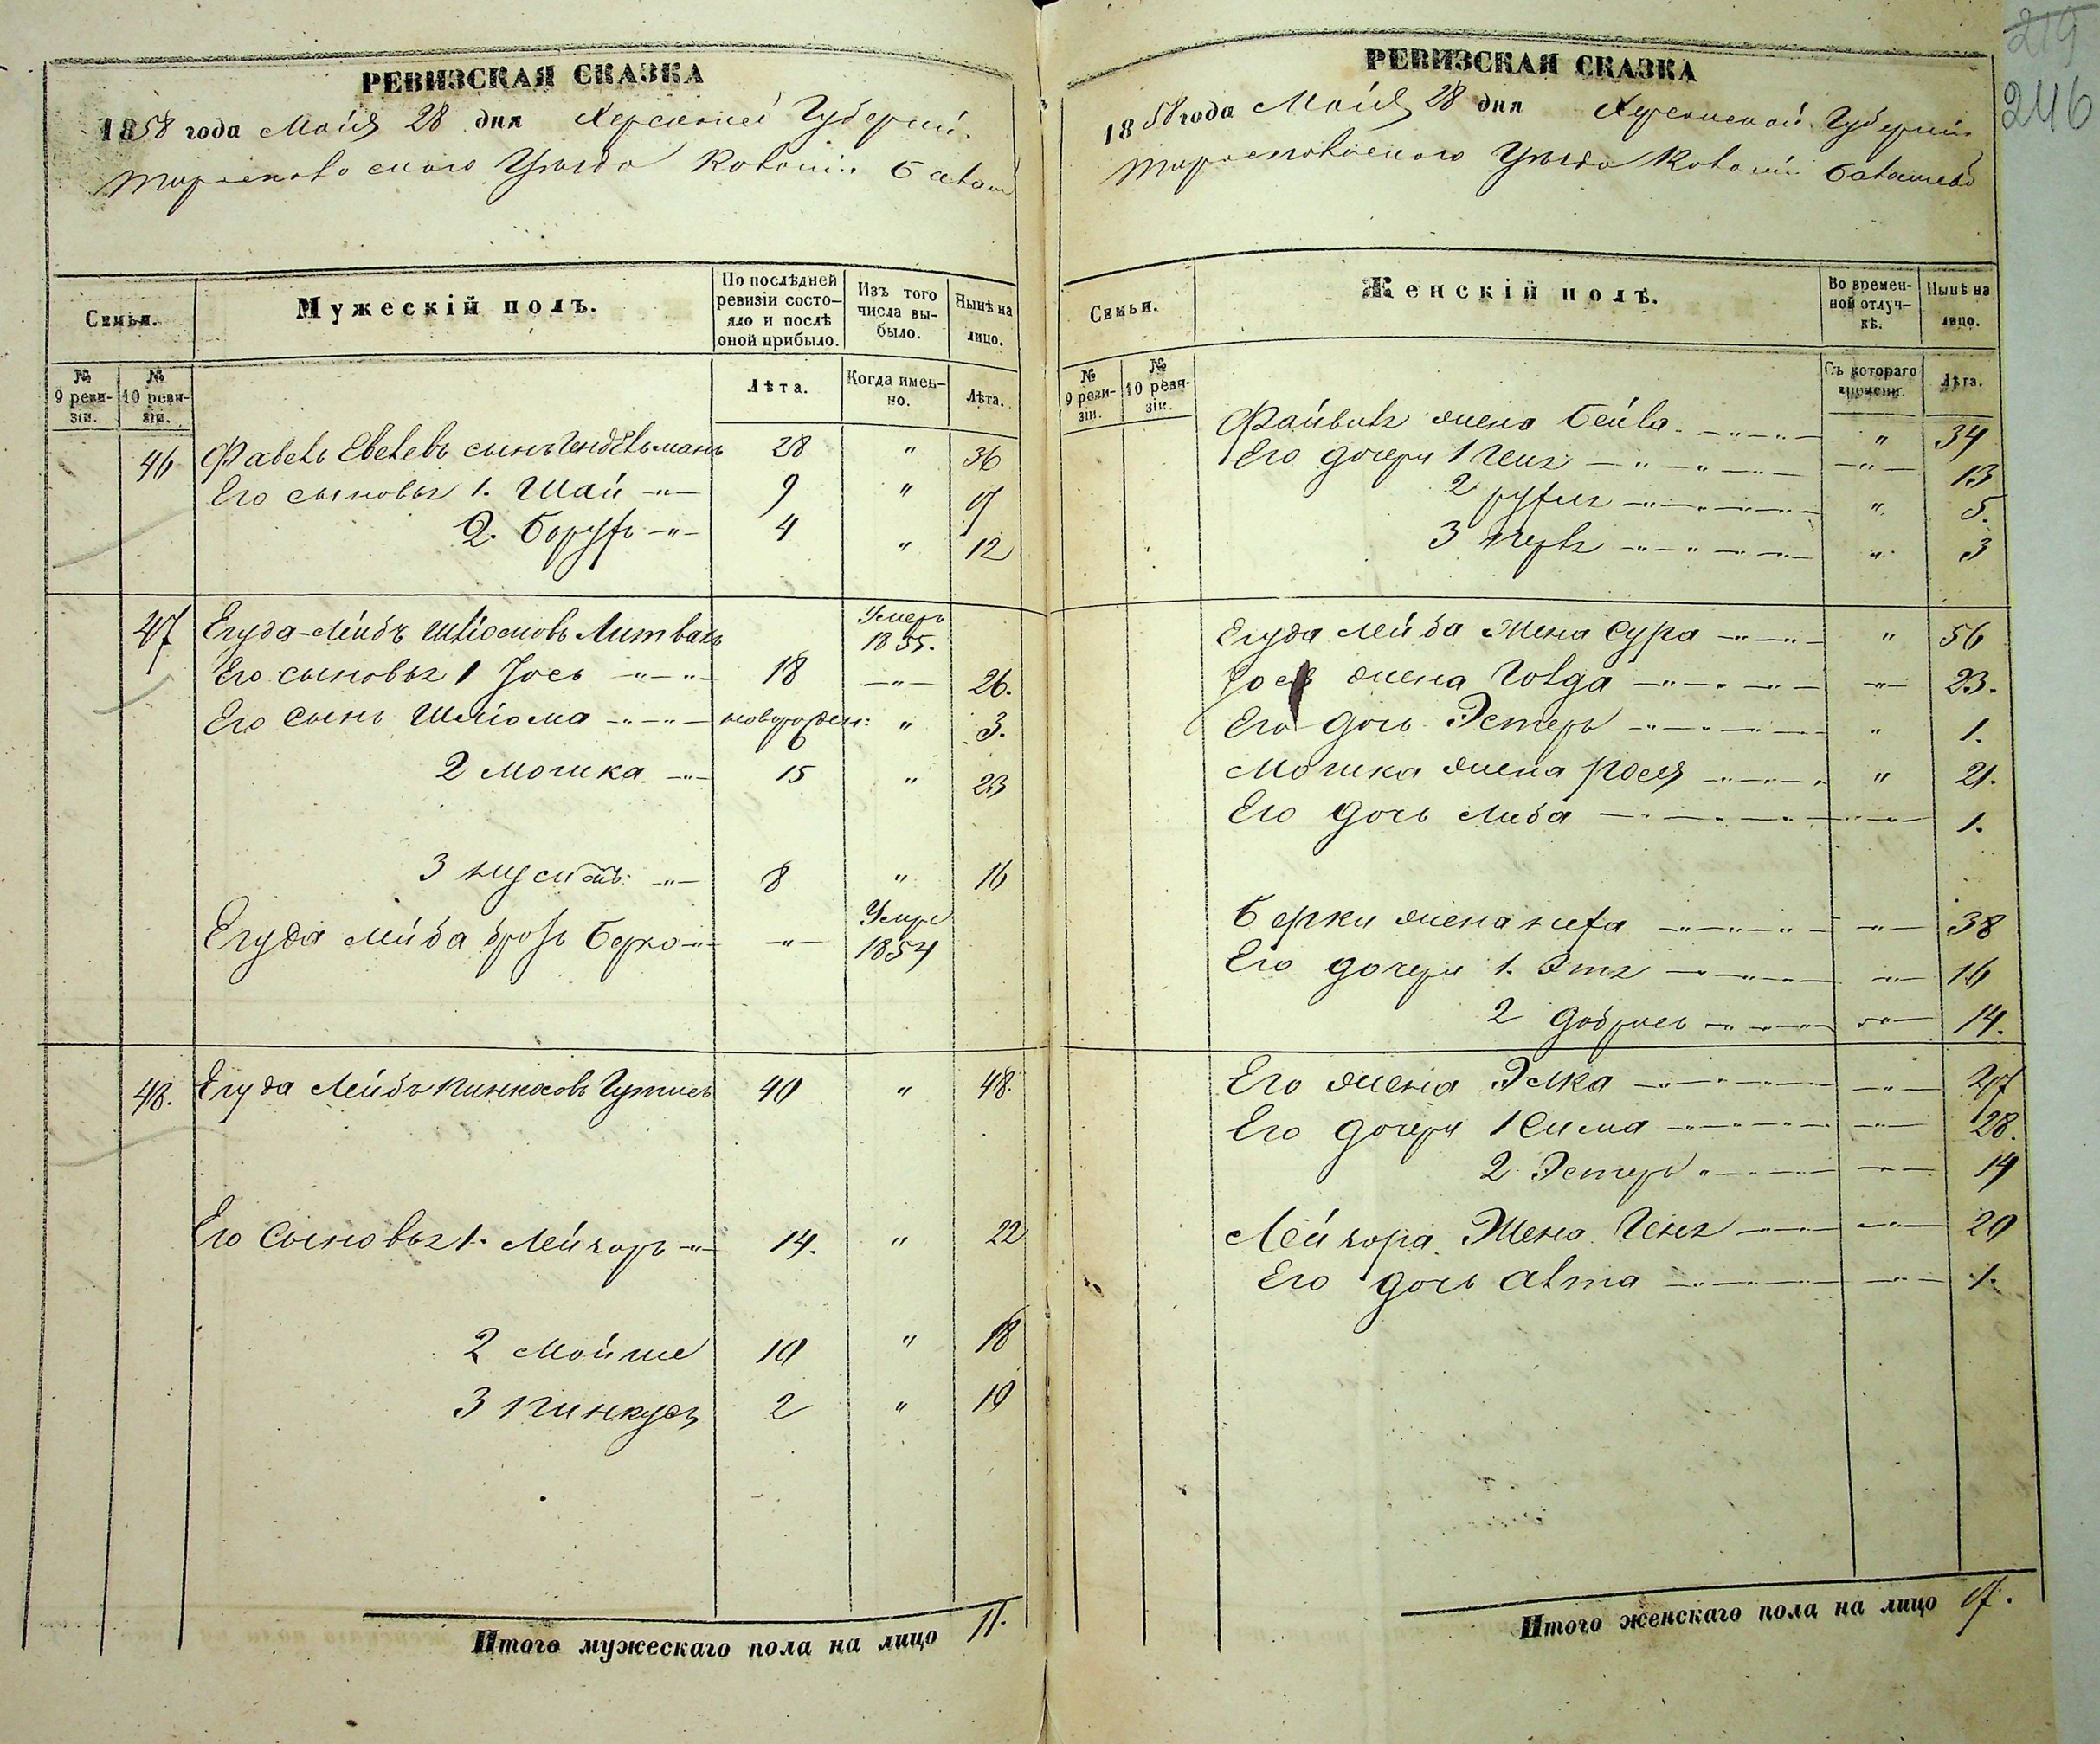 РЕВИЗСКАЯ СКАЗКА
1858 года Маія 28 дня Херсонской Губерніи
Тираспольскаго Уѣзда Колоніи
Семьи.
Мужескій полъ.
По послѣдней ревизіи состояло и послѣ оной прибыло.
Изъ того числа выбыло.
Нынѣ на лицо.
№ 9 ревизіи.
№ 10 ревизіи.
Лѣта.
Когда именно.
Лѣта.
46 сынъ 28 " 36
Его сыновья 1. Шай 9 " 17
2. Борухъ 4 " 12
47 Егуда-Лейбъ Шлiомовъ Литвакъ Умеръ 1855.
Его сыновья 1 Іось 18 26.
Его сынъ Шліома новорожден: " 3.
2 Мошка 15 " 23
3 8 " 16
Егуда Лейба братъ Берко Умре 1854
48. Егуда Лейбъ Пинкасовъ 40 " 48.
Его сыновья 1. Лейзоръ 14. " 22
2 Мойше 10 " 18
3 Пинкусъ 2 " 10
Итого мужескаго пола на лицо 11.
219
246
РЕВИЗСКАЯ СКАЗКА
1858 года Маія 28 дня Херсонской Губерніи
Тираспольскаго Уѣзда Колоніи
Семьи.
Женскій полъ.
Во временной отлучкѣ.
Нынѣ на лицо.
№ 9 ревизіи.
№ 10 ревизіи.
Съ котораго времени.
Лѣта.
жена Бейла " 34
Его дочери 1 Геня 13
2 Рухля " 5.
3 " 3
Егуда Лейба Жена Сура " 56
жена Голда 23.
Его дочь Эстеръ " 1.
Мошка жена Рося " 21.
Его дочь Либа 1.
Берки жена Неха 38
Его дочери 1. Этя 16
2 Добрись 14.
Его жена Элка 47
Его дочери 1 Сима 28.
2 Эстеръ 14
Лейзора Жена Геня 20
Его дочь Алта 1.
Итого женскаго пола на лицо 17.